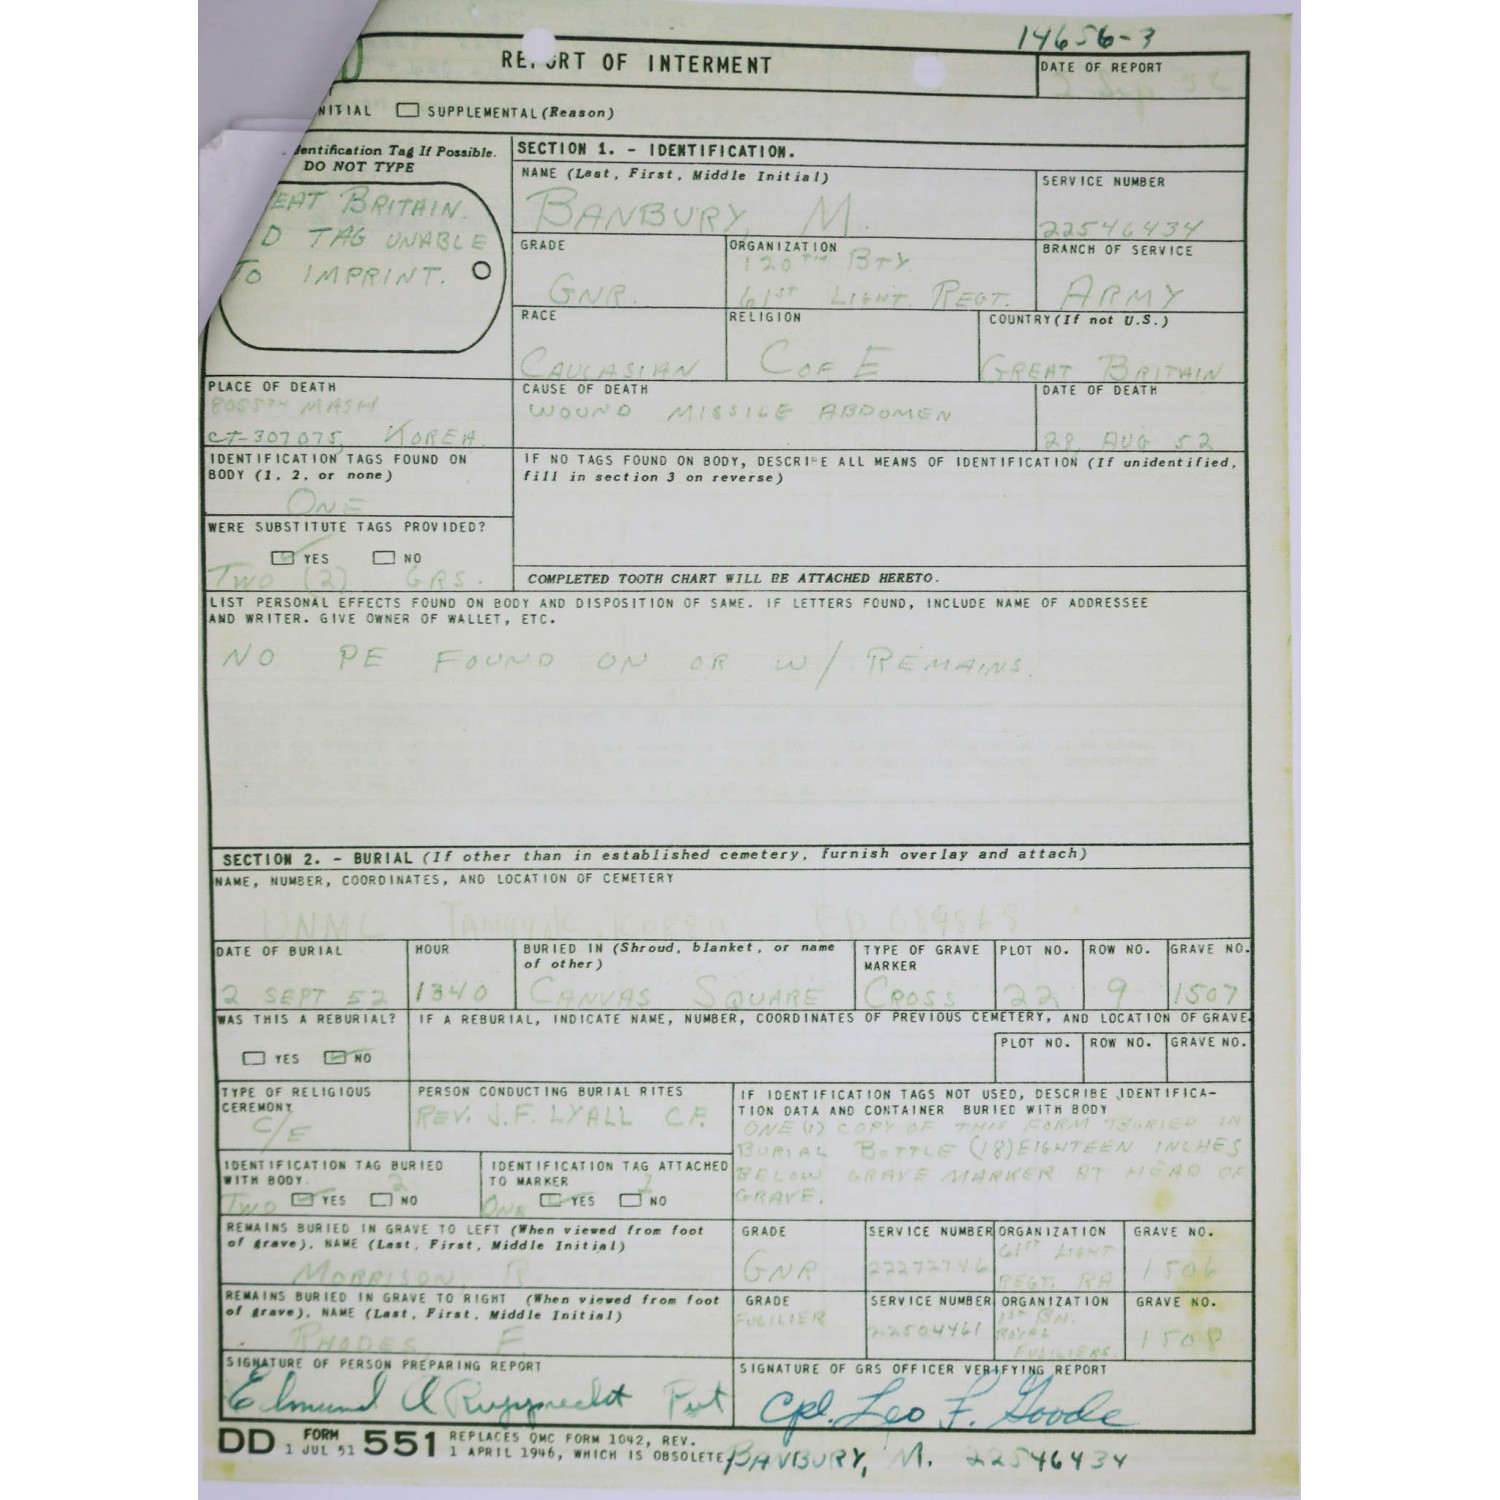 14656-3
REPORT OF INTERMENT
DATE OF REPORT
2 Sep 52
NITIAL SUPPLEMENTAL (Reason)
entification Tag If Possible.
DO NOT TYPE
EAT BRITAIN.
D TAG UNABLE
TO IMPRINT.
SECTION 1. - IDENTIFICATION.
NAME (Last, First, Middle Initial)
BANBURY, M.
SERVICE NUMBER
22546434
GRADE
GNR.
ORGANIZATION
120TH BTY.
61ST LIGHT. REGT.
BRANCH OF SERVICE
ARMY
RACE
CAUCASIAN
RELIGION
C OF E
COUNTRY (If not U.S.)
GREAT BRITAIN
PLACE OF DEATH
8055TH MASH
CT-307075, KOREA.
CAUSE OF DEATH
WOUND MISSILE ABDOMEN
DATE OF DEATH
28, AUG 52
IDENTIFICATION TAGS FOUND ON
BODY (1, 2, or none)
ONE
IF NO TAGS FOUND ON BODY, DESCRIBE ALL MEANS OF IDENTIFICATION (If unidentified,
fill in section 3 on reverse)
WERE SUBSTITUTE TAGS PROVIDED?
YES NO
TWO (2) GRS.
COMPLETED TOOTH CHART WILL BE ATTACHED HERETO.
LIST PERSONAL EFFECTS FOUND ON BODY AND DISPOSITION OF SAME. IF LETTERS FOUND, INCLUDE NAME OF ADDRESSEE
AND WRITER. GIVE OWNER OF WALLET, ETC.
NO PE FOUND ON OR W/ REMAINS.
SECTION 2. - BURIAL (If other than in established cemetery, furnish overlay and attach)
NAME, NUMBER, COORDINATES, AND LOCATION OF CEMETERY
UNMC TANGGOK, KOREA
DATE OF BURIAL
2 SEPT 52
HOUR
1340
BURIED IN (Shroud, blanket, or name
of other)
CANVAS SQUARE
TYPE OF GRAVE
MARKER
CROSS
PLOT NO.
22
ROW NO.
9
GRAVE NO.
1507
WAS THIS A REBURIAL?
YES NO
IF A REBURIAL, INDICATE NAME, NUMBER, COORDINATES OF PREVIOUS CEMETERY, AND LOCATION OF GRAVE.
PLOT NO. ROW NO. GRAVE NO.
TYPE OF RELIGIOUS
CEREMONY
C/E
PERSON CONDUCTING BURIAL RITES
REV. J.F. LYALL C.F.
IF IDENTIFICATION TAGS NOT USED, DESCRIBE IDENTIFICA-
TION DATA AND CONTAINER BURIED WITH BODY
ONE (1) COPY OF THIS FORM BURIED IN
BURIAL BOTTLE (18) EIGHTEEN INCHES
BELOW GRAVE MARKER AT HEAD OF
GRAVE.
IDENTIFICATION TAG BURIED
WITH BODY. 2
TWO YES NO
IDENTIFICATION TAG ATTACHED
TO MARKER 1
ONE YES NO
REMAINS BURIED IN GRAVE TO LEFT (When viewed from foot
of grave). NAME (Last, First, Middle Initial)
MORRISON, R
GRADE
GNR
SERVICE NUMBER
22272746
ORGANIZATION
61ST LIGHT
REGT. RA
GRAVE NO.
1506
REMAINS BURIED IN GRAVE TO RIGHT (When viewed from foot
of grave). NAME (Last, First, Middle Initial)
RHODES F.
GRADE
FUSILIER
SERVICE NUMBER
22504461
ORGANIZATION
1ST BN.
ROYAL
FUSILIERS.
GRAVE NO.
1508
SIGNATURE OF PERSON PREPARING REPORT
Edmund A Rupprecht Pvt
SIGNATURE OF GRS OFFICER VERIFYING REPORT
Cpl. Leo F. Goode
DD FORM 1 JUL 51 551 REPLACES QMC FORM 1042, REV.
1 APRIL 1946, WHICH IS OBSOLETE
BANBURY, M. 22546434